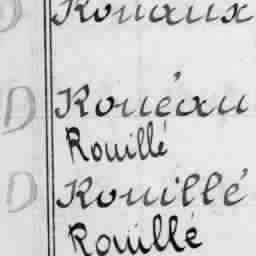 Rouaux
D Rouéau
Rouillé
D Rouillé
Rouillé